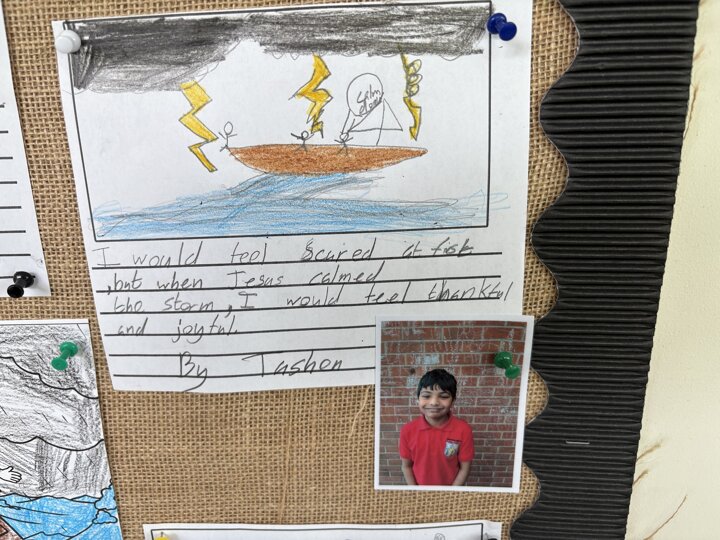 calm
down
I would feel scared at fisrt
,but when Jesus calmed
the storm, I would feel thankful
and joyful.
By Tashon